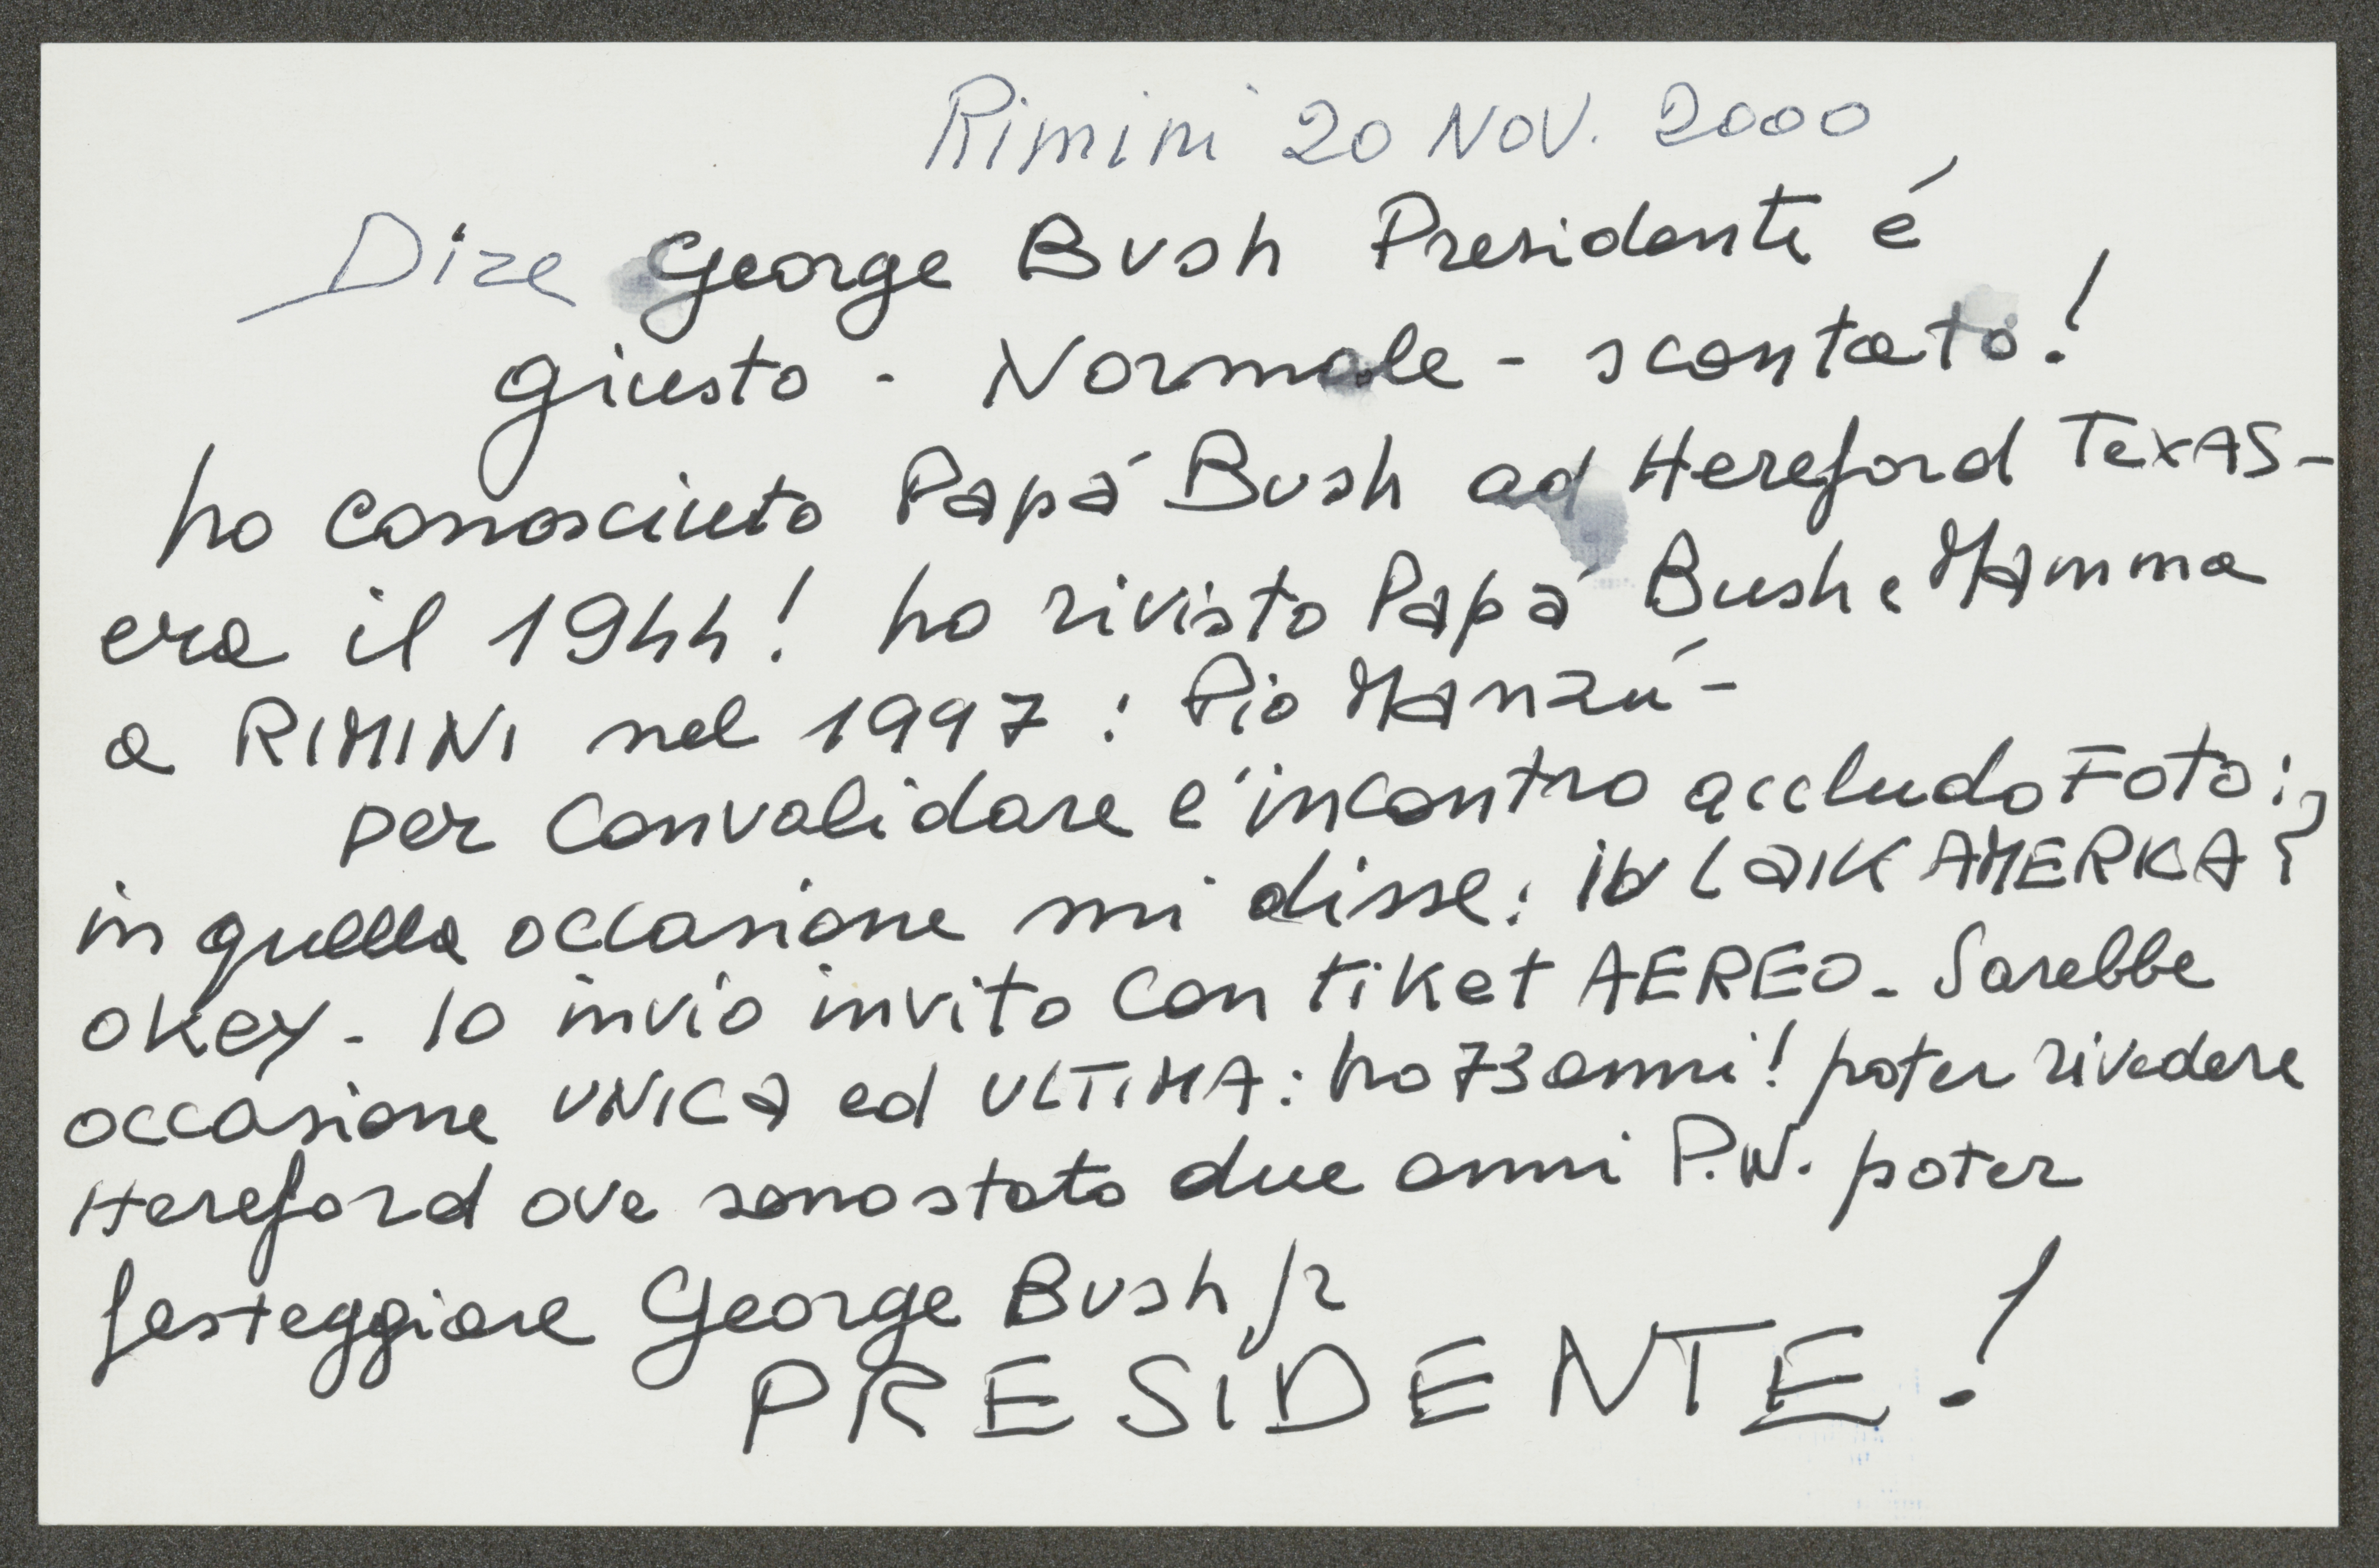 Rimini 20 NOV. 2000
Dire George Bush Presidente é
giusto - Normale - scontato!
ho conosciuto Papá Bush ad Hereford TexAS-
era il 1944! ho rivisto Papá Bush e MAmma
a RIMINI nel 1997: Pio MAnzú-
per convalidare l'incontro accludo Foto:
in quella occasione mi disse: iU LaIK AMERIKA?
okey - Io invio invito con tiket AEREO - Sarebbe
occasione UNICA ed ULTIMA: ho 73 anni! poter rivedere
Hereford ove sono stato due anni P.W. poter
festeggiare George Bush Jr
PRESIDENTE!